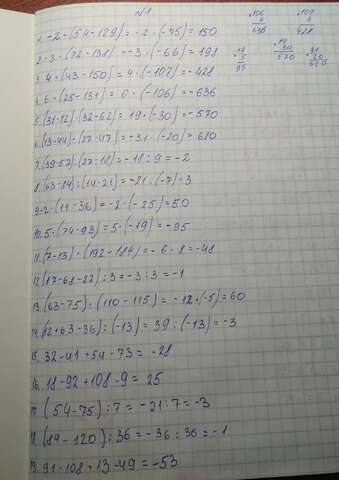 №1
1. -2·(54-129) = -2·(-75) = 150
2. -3·(72-138) = -3·(-66) = 198
3. 4·(43-150) = 4·(-107) = -428
4. 6·(25-131) = 6·(-106) = -636
5. (31-12)·(32-62) = 19·(-30) = -570
6. (13-44)·(27-47) = -31·(-20) = 620
7. (39-57):(27-18) = -18:9 = -2
8. (63-84):(14-21) = -21:(-7) = 3
9. -2·(11-36) = -2·(-25) = 50
10. 5·(74-93) = 5·(-19) = -95
11. (7-13)·(192-184) = -6·8 = -48
12. (87-68-22):3 = -3:3 = -1
13. (63-75)·(110-115) = -12·(-5) = 60
14. (12+63-36):(-13) = 39:(-13) = -3
15. 32-41+54-73 = -28
16. 18-92+108-9 = 25
17. (54-75):7 = -21:7 = -3
18. (84-120):36 = -36:36 = -1
19. 91-108+13-49 = -53
106
6
636
107
4
428
19
5
95
19
30
570
31
20
620